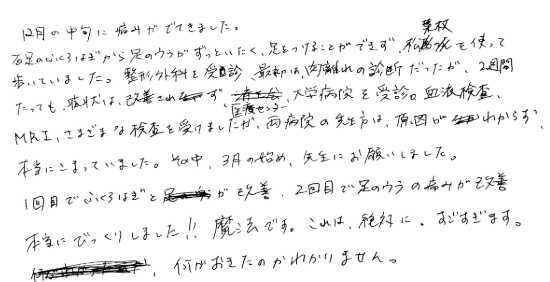 12月の中旬に痛みがでてきました。
右足のふくらはぎから足のウラがずっといたく、足をつけることができず、松葉杖を使って
歩いていました。整形外科を受診、最初は、肉離れの診断だったが、2週間
たっても、症状は、改善されず 医療センター、大学病院を受診。血液検査、
MRI、さまざまな検査を受けましたが、両病院の先生方は、原因がわからず、
本当にこまっていました。その中、3月の始め、先生にお願いしました。
1回目でふくらはぎとが改善、2回目で足のウラの痛みが改善
本当にびっくりしました!! 魔法です。これは、絶対に。すごすぎます。
何がおきたのかわかりません。